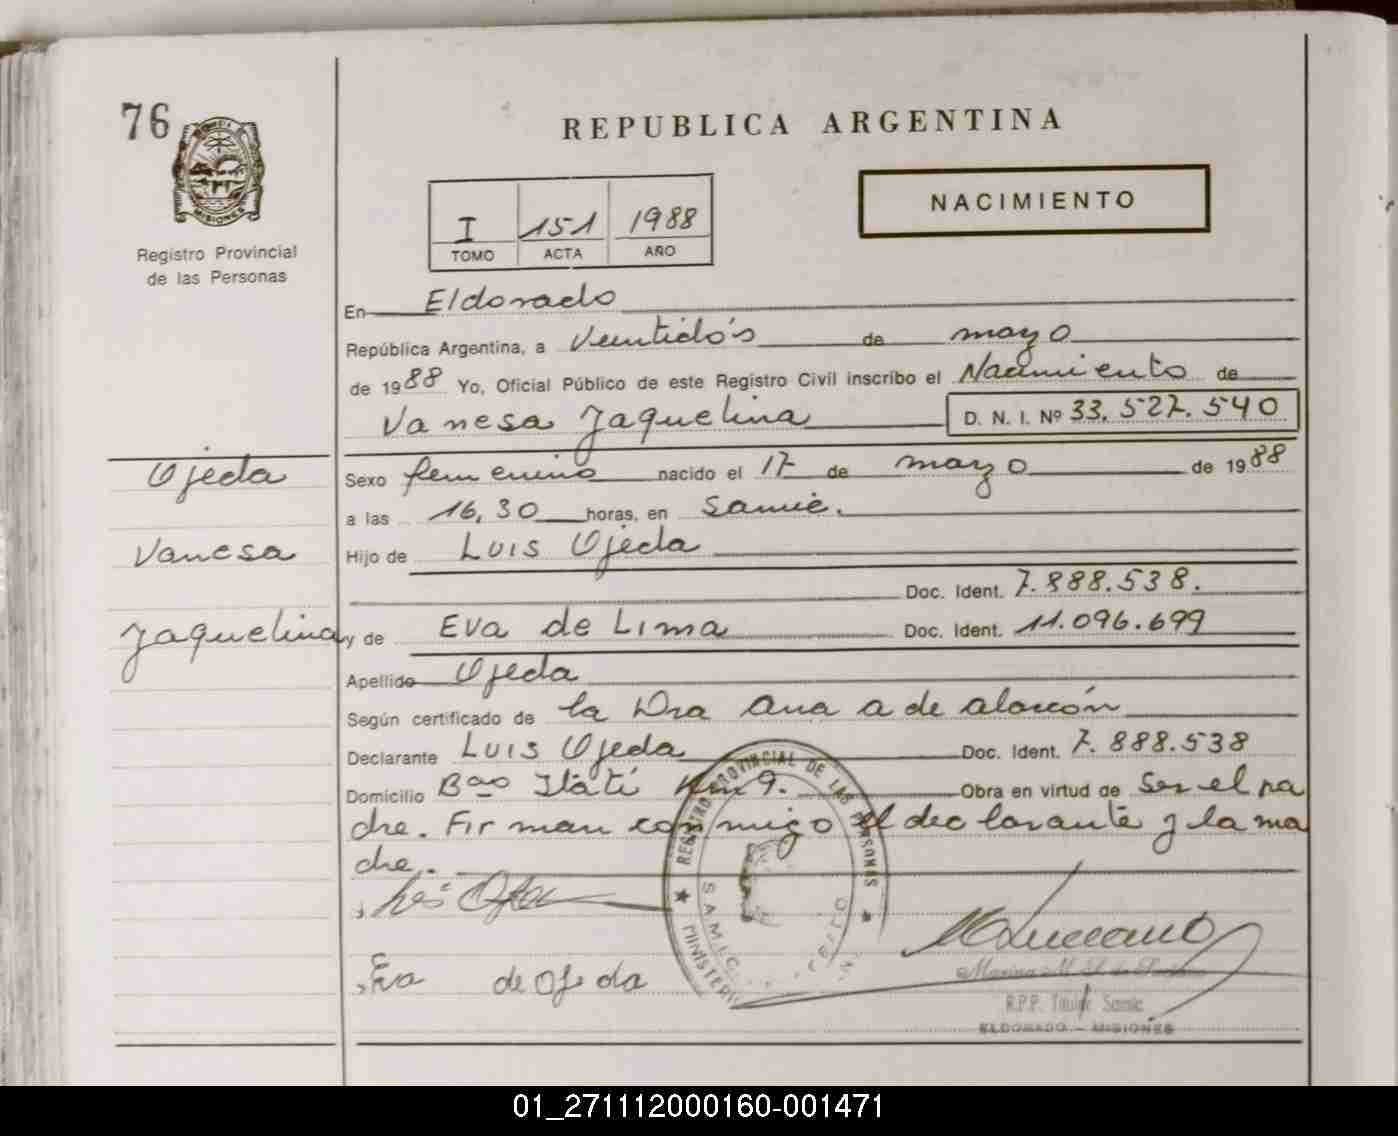 76
REPUBLICA ARGENTINA
MISIONES
Registro Provincial
de las Personas
I 151 1988
TOMO ACTA AÑO
NACIMIENTO
En Eldorado
República Argentina, a Veintidós de mayo
de 1988 Yo, Oficial Público de este Registro Civil inscribo el Nacimiento de
Vanesa Jaquelina D. N. I. Nº 33.527.540
Ojeda
Vanesa
Jaquelina
Sexo femenino nacido el 17 de mayo de 1988
a las 16,30 horas, en Samic.
Hijo de Luis Ojeda
Doc. Ident. 7.888.538.
y de Eva de Lima Doc. Ident. 11.096.699
Apellido Ojeda
Según certificado de la Dra Ana A de Alarcón
Declarante Luis Ojeda Doc. Ident. 7.888.538
Domicilio Bº Itatí Km 9. Obra en virtud de Ser el pa
dre. Firman conmigo el declarante y la ma
dre.
REGISTRO PROVINCIAL DE LAS PERSONAS
S.A.M.I.C.
MINISTERI
Eva de Ojeda
R.P.P. Titular Samic
ELDORADO - MISIONES
01_271112000160-001471